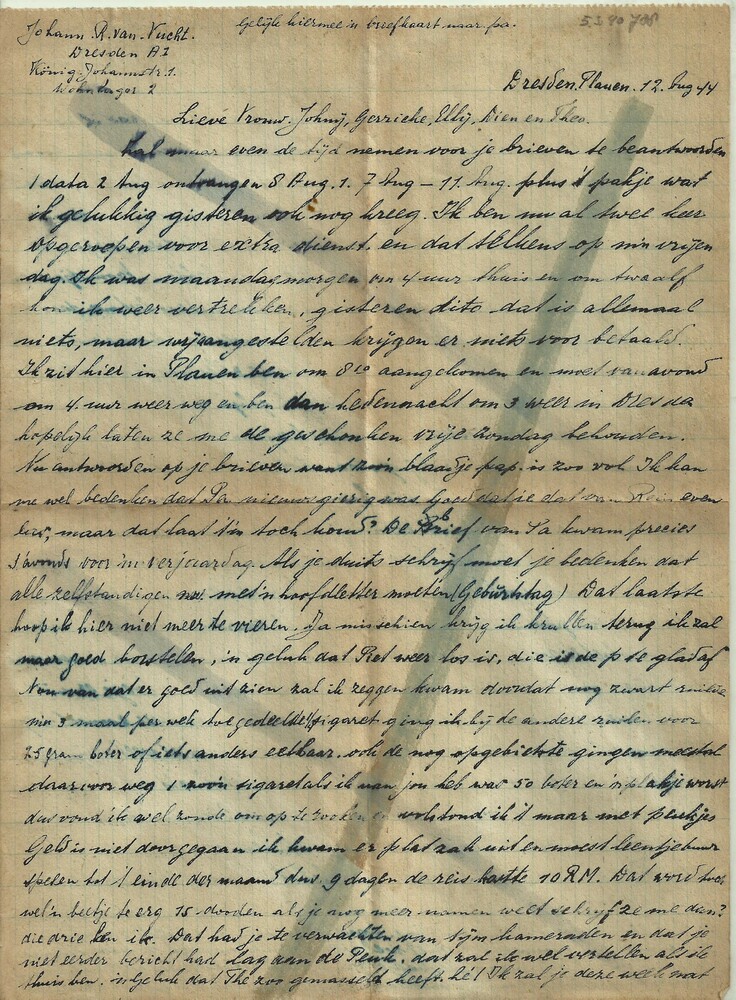 Gelijk hiermee 'n briefkaart naar pa.
Johann. R. van. Vucht.
Dresden A I
König. Johannstr. 1.
Wohnlager 2
Dresden. Plauen. 12. Aug 44
Lieve Vrouw. Johnÿ, Gerrieke, Ellÿ, Dien en Theo.
Zal maar even de tijd nemen voor je brieven te beantwoorden
1 data 2 Aug ontvangen 8 Aug. 1. 7 Aug – 11 Aug. plus 't pakje wat
ik gelukkig gisteren ook nog kreeg. Ik ben nu al twee keer
opgeroepen voor extra dienst. en dat telkens op m'n vrijen
dag. Ik was maandagmorgen om 4 uur thuis en om twaalf
kon ik weer vertrekken, gisteren dito dat is allemaal
niets, maar wij aangestelden krijgen er niets voor betaald.
Ik zit hier in Plauen ben om 8 10 aangekomen en moet vanavond
om 4. uur weer weg en ben dan hedennacht om 3 weer in Dresden
hopelijk laten ze me de geschonken vrije zondag behouden.
Nu antwoorden op je brieven want zoo'n blaadje pap. is zoo vol Ik kan
me wel bedenken dat Pa nieuwsgierig was Goed dat ie dat van even
las, maar dat laat i'm toch koud? De Brief van Pa kwam precies
s'avonds voor m'n verjaardag. Als je duits schrijf moet je bedenken dat
alle zelfstandigen met 'n hoofdletter moeten (Gebürhtag) Dat laatste
hoop ik hier niet meer te vieren. Ja misschien krijg ik krullen terug ik zal
maar goed borstelen, 'n geluk dat Piet weer los is, die is de p te glad af
Nou van dat er goed uit zien zal ik zeggen kwam doordat nog zwart
m'n 3 maal per week toegedeelde sigaret ging ik bij de andere ruilen voor
25 gram boter of iets anders eetbaar. ook de nog opgebietste gingen meestal
daarvoor weg 1 zoo'n sigaret als ik van jou heb was 50 boter en 'n plakje worst
dus vond ik wel zonde om op te rooken en volstond ik 't maar met peukjes
Geld is niet doorgegaan ik kwam er plat zak uit en moest leentjebuur
spelen tot 't einde der maand dus 9 dagen de reis kostte 10 RM. Dat word toch
wel 'n beetje te erg 15 dooden als je nog meer namen weet schrijf ze me dan?
die drie ken ik. Dat had je te verwachten van kameraden en dat je
niet eerder bericht had lag aan de Penk. dat zal ik wel vertellen als ik
thuis ben. 'n Geluk dat Thé zoo gemasseld heeft. hé! Ik zal je deze week wat